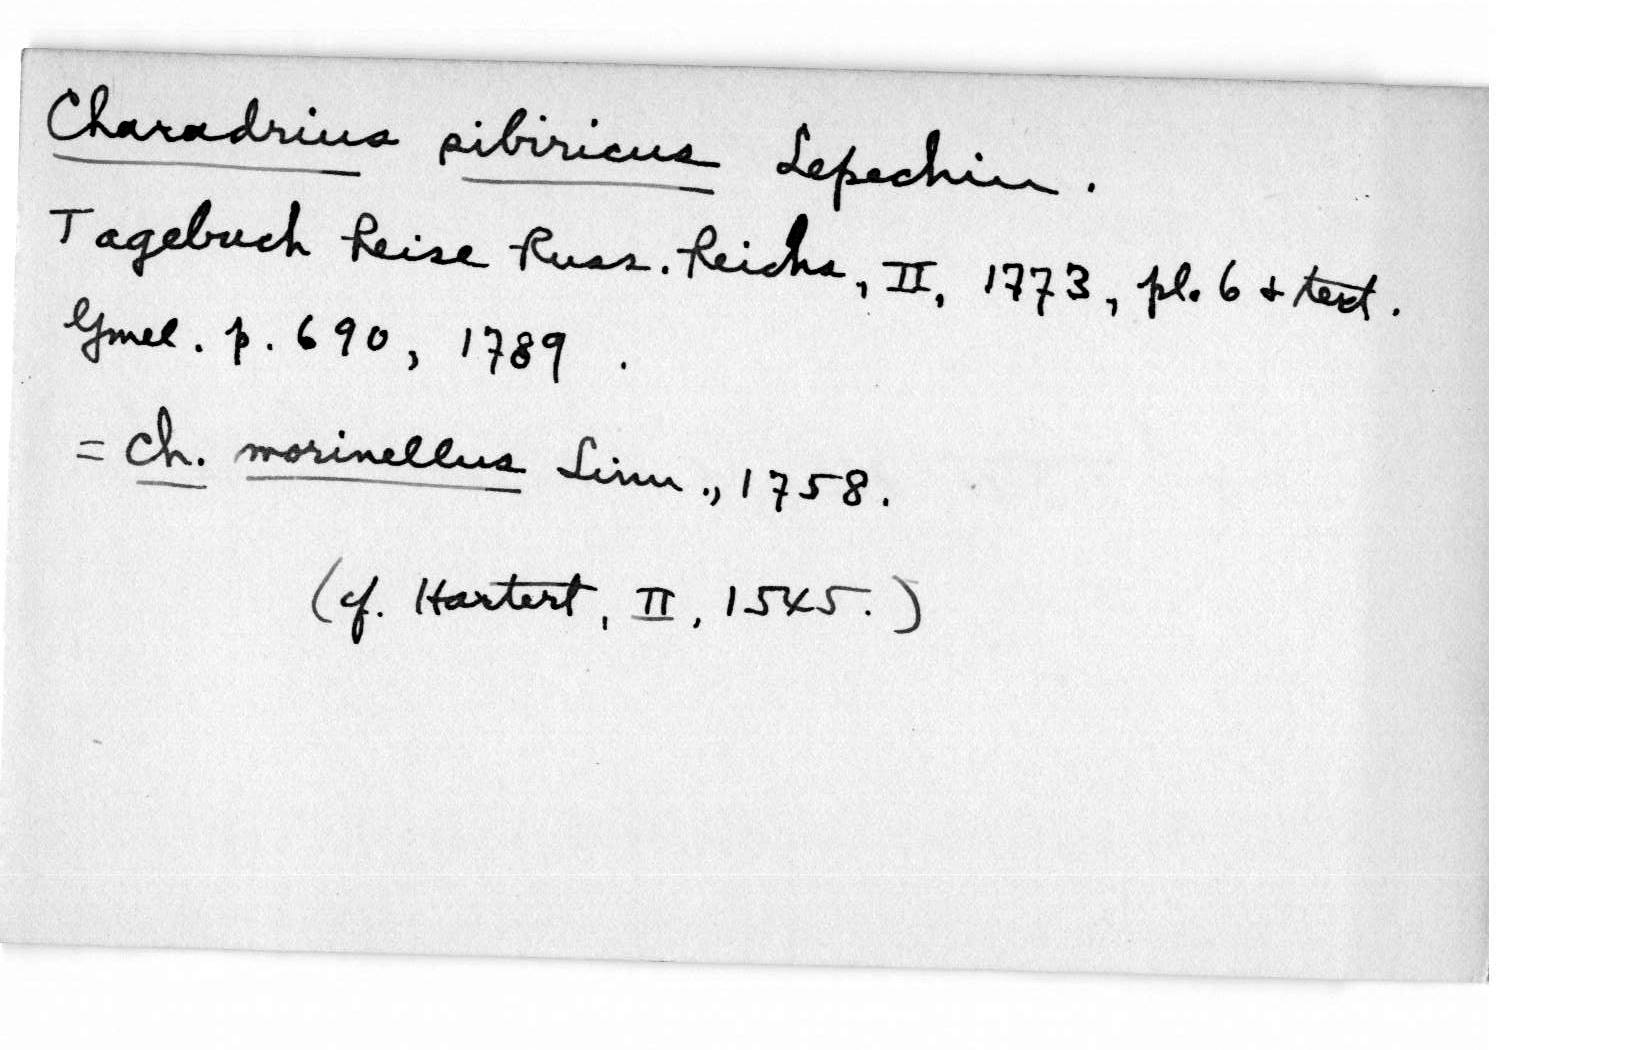 Charadrius sibiricus Lepechin.
Tagebuch Reise Russ. Reichs, II, 1773, pl. 6 & text.
Gmel. p. 690, 1789.
= Ch. morinellus Linn., 1758.
(cf. Hartert, II, 1545.)